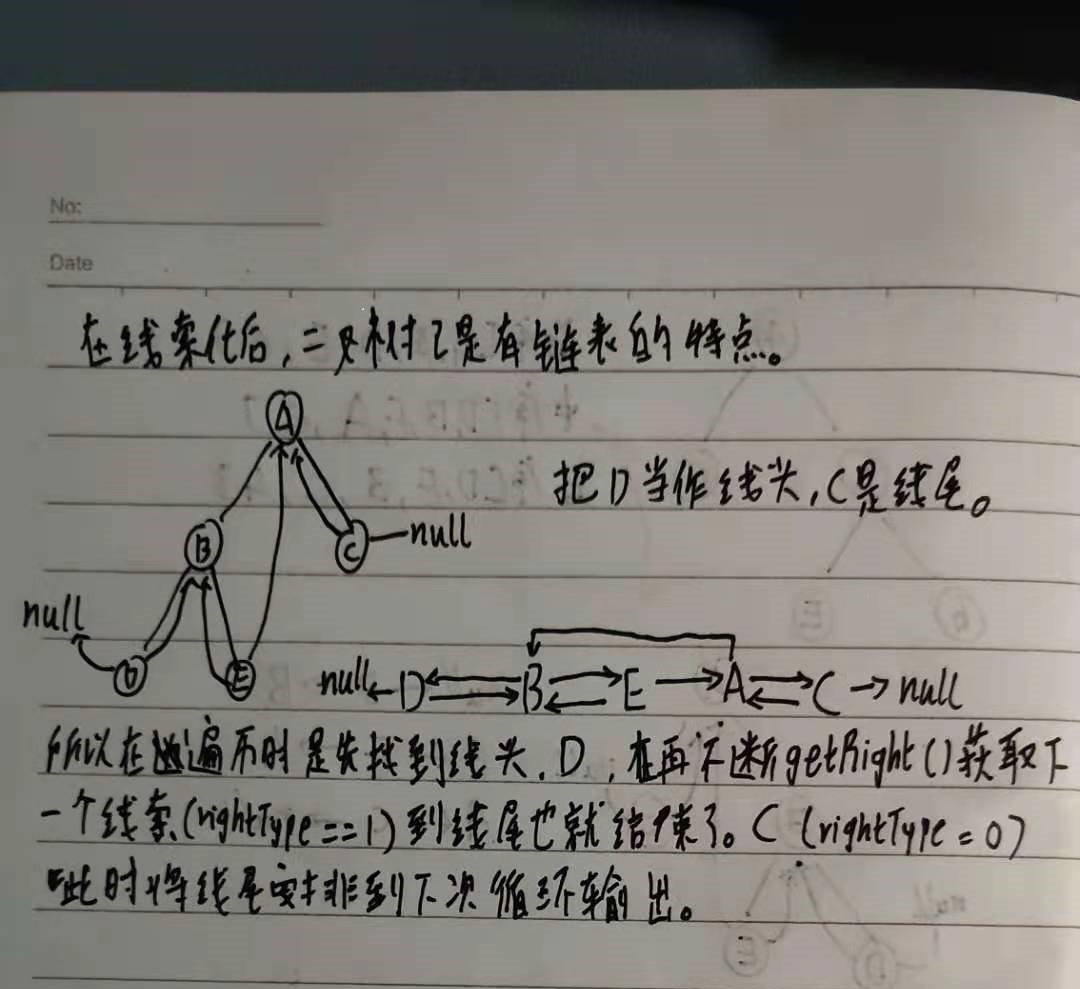 No:
Date
在线索化后,二叉树已是有链表的特点。
A
把D当作线头,C是线尾。
B
C
null
null
D
E
null←D⇄B⇄E→A⇄C→null
所以在遍历时是先找到线头,D,在再不断getRight()获取下
一个线索(rightType==1)到线尾也就结束了。C(rightType=0)
此时将线尾安排到下次循环输出。